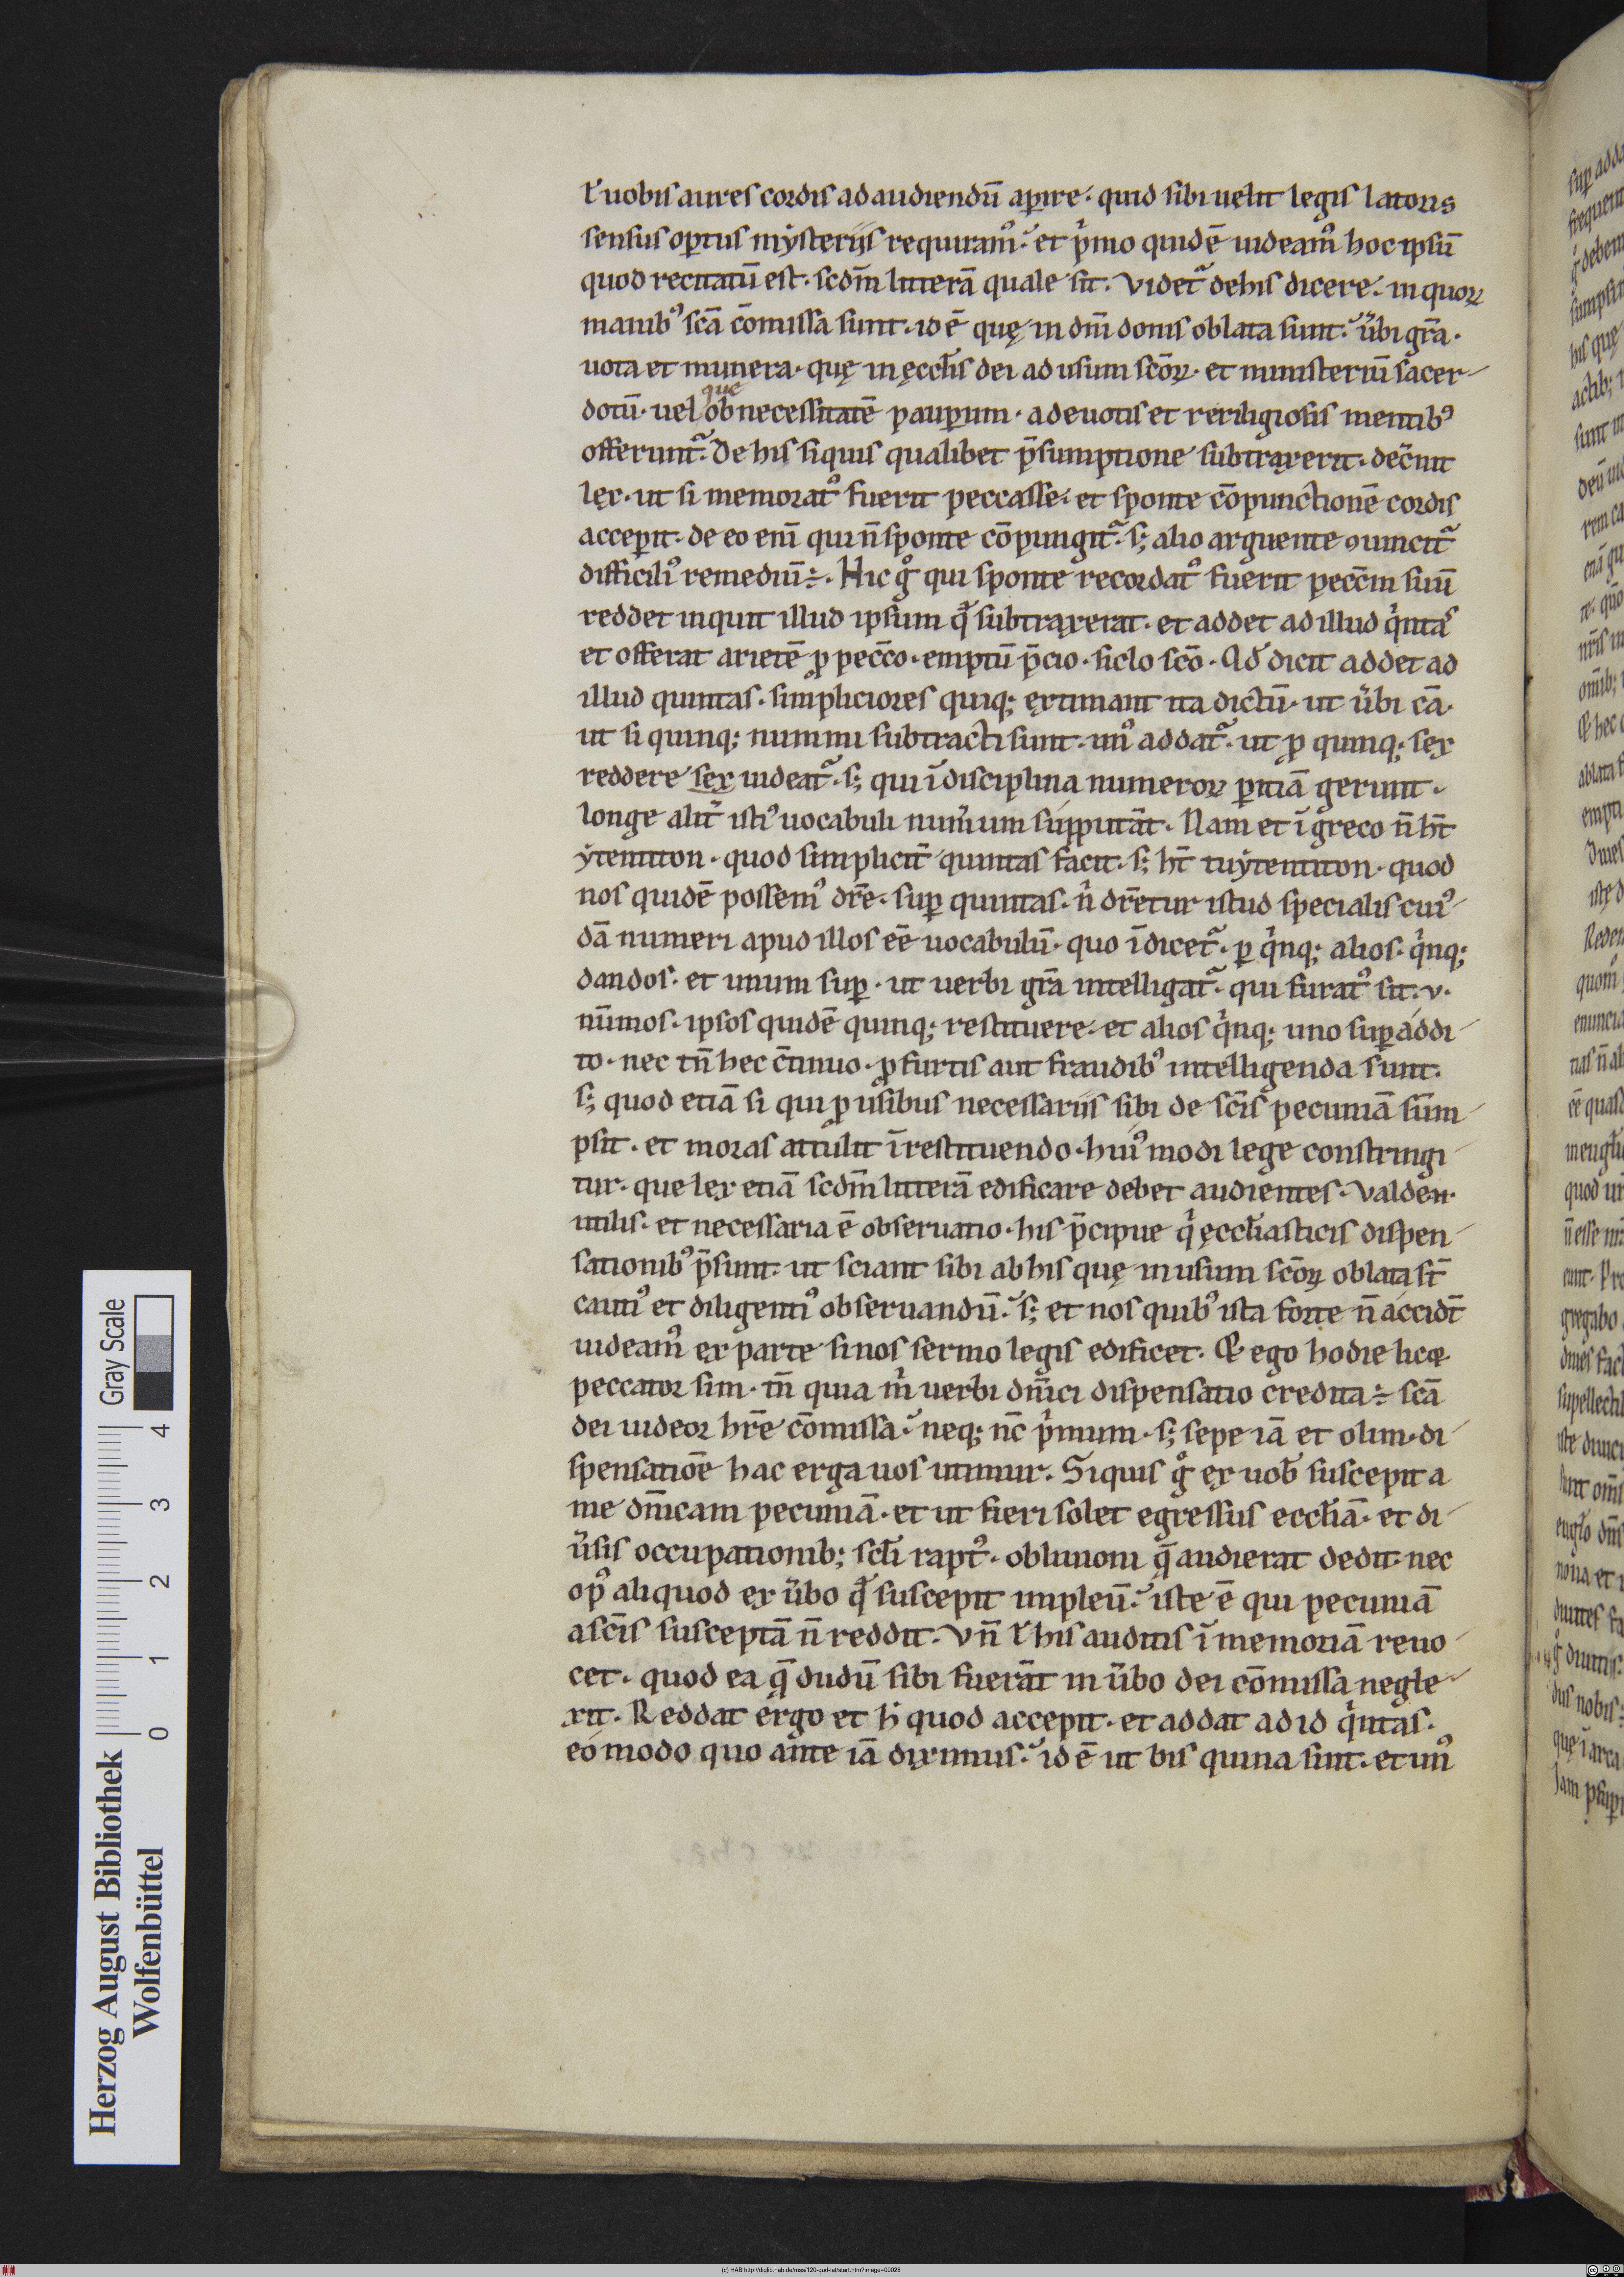 ł uobis aures cordis ad audiendū aꝑire· quid sibi uelit legis latoris
sensus oꝑtus mẏsteriis requiramꝰ. et pͥmo quidē uideamꝰ hoc ipsū
quod recitatū est· scdm̄ litterā quale sit. Videt᷑ de his dicere· in quoꝝ
manibꝰ scā cōmissa sunt· id ē quę in dn̄i donis oblata sunt. ůbi grā·
uota et munera· quę in ęccłis dei ad usum scōꝝ· et ministeriū sacer-
dotū· uel que ob necessitatē pauꝑum· a deuotis et reriligiosis mentibꝰ
offerunt᷑. De his siquis qualibet p̄sumptione subtraxerit· dec̄nit
lex· ut si memoratꝰ fuerit peccasse· et sponte cōpunctionē cordis
acceꝑit· de eo eni᷑ qui n̄ sponte cōpungit᷑· s; alio arguente ꝯuincit᷑
difficiliꝰ remediū ÷. Hic gͦ qui sponte recordatꝰ fuerit pecc̄m suū
reddet inquit illud ipsum qͩ subtraxerat· et addet ad illud qͥntas
et offerat arietē ꝓ pecc̄o· emptū p̄cio· siclo scō· Qd̄ dicit addet ad
illud quintas· simpliciores quiq; extimant ita dictū· ut ůbi cā·
ut si quinq; nummi subtracti sunt· unꝰ addat᷑· ut ꝓ quinq; sex
reddere sex uideat᷑· s; qui ī disciplina numeroꝝ ꝑitiā gerunt·
longe alit᷑ istiꝰ uocabuli num̄um supputāt· Nam et ī greco n̄ hт̄
ẏtentiton· quod simplicit᷑ quintas facit· s; ht̄ tuẏtentiton· quod
nos quidē possemꝰ dr̄e· suꝑ quintas· nͥ dr̄etur istud specialis cuiꝰ-
dā numeri apud illos eē uocabulū· quo īdicet᷑· ꝑ qͥnq; alios· qͥnq;
dandos· et unum suꝑ· ut uerbi grā intelligat᷑· qui furatꝰ sit· v·
nūmos· ipsos quidē quinq; restituere· et alios qͥnq; uno suꝑaddi-
to· nec tn̄ hec c̄tinuo· ꝓ furtis aut fraudibꝰ intelligenda sunt·
s; quod etiā si qui ꝓ usibus necessariis sibi de scīs pecuniā sūm-
psit· et moras attulit ī restituendo· huiꝰmodi lege constringi-
tur· que lex etiā scdm̄ litterā edificare debet audientes· Valde n·
utilis· et necessaria ē obseruatio· his p̄cipue qͥ ęccłiasticis dispen-
sationibꝰ p̄sunt· ut sciant sibi ab his quę in usum scōꝝ oblata st̄
cautiꝰ et diligentiꝰ obseruandū. s; et nos quibꝰ ista forte n̄ accidт̄
uideamꝰ ex parte si nos sermo legis edificet. Et ego hodie licet
peccator sim· tn̄ quia mͥ uerbi dn̄ici dispensatio credita ÷ scā
dei uideor hr̄e cōmissa. neq; nc̄ pͥmum· s; sepe iā et olim· di-
spensatiōe hac erga uos utimur. Siquis gͦ ex uob̄ suscepit a
me dn̄icam pecuniā· et ut fieri solet egressus eccłiā· et di-
ůsis occupationib; scłi raptꝰ· obliuioni q̄ audierat dedit· nec
opꝰ aliquod ex ůbo qͩ suscepit impleū. iste ē qui pecuniā
a scīs susceptā n̄ reddit. Vn̄ ł his auditis ī memoriā reuo-
cet· quod ea q̄ dudū sibi fuerāt in ůbo dei cōmissa negle-
xit. Reddat ergo et ħ quod accepit· et addat ad id qͥntas·
eo modo quo ante iā diximus. id ē ut bis quina sint· et unꝰ
Gray Scale
0 1 2 3 4
Herzog August Bibliothek
Wolfenbüttel
(c) HAB http://diglib.hab.de/mss/120-gud-lat/start.htm?image=00028